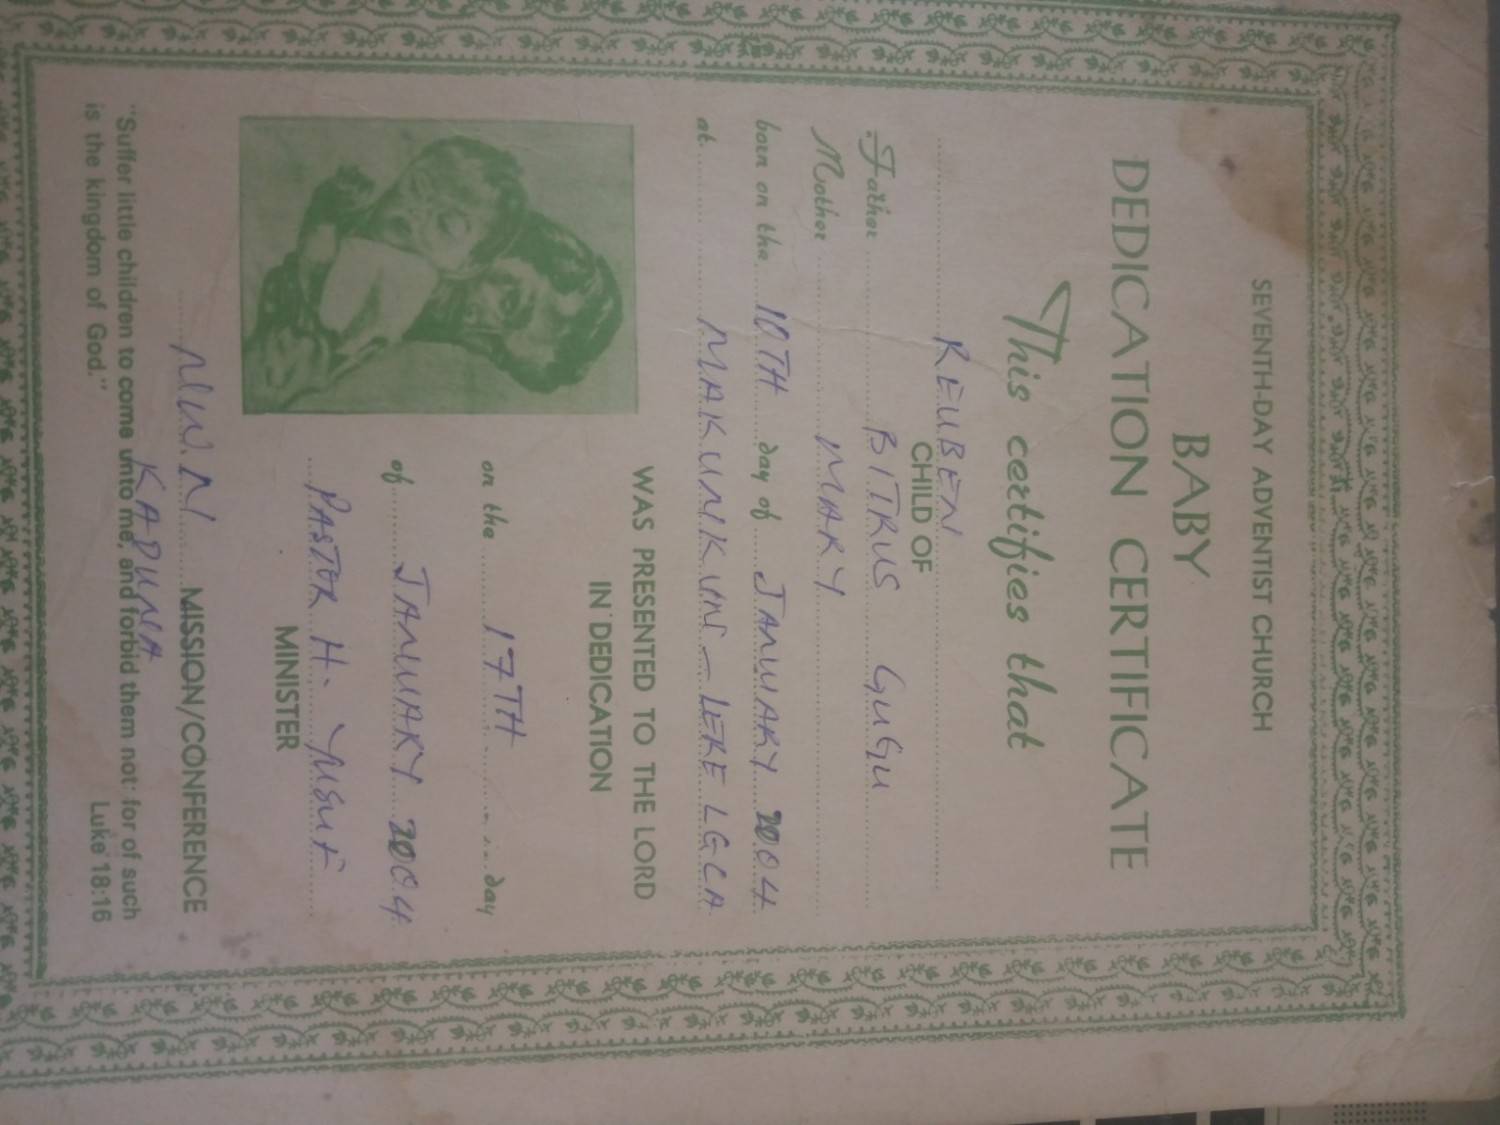 SEVENTH-DAY ADVENTIST CHURCH
BABY
DEDICATION CERTIFICATE
This certifies that
REUBEN
CHILD OF
Father BITRUS GUGU
Mother MARY
born on the 10TH day of JANUARY 2004
at MAKUNKUNS - LERE LGCA
WAS PRESENTED TO THE LORD
IN DEDICATION
on the 17TH day
of JANUARY 2004
PASTOR H. YUSUF
MINISTER
N.W.N MISSION/CONFERENCE
KADUNA
"Suffer little children to come unto me, and forbid them not: for of such
is the kingdom of God." Luke 18:16